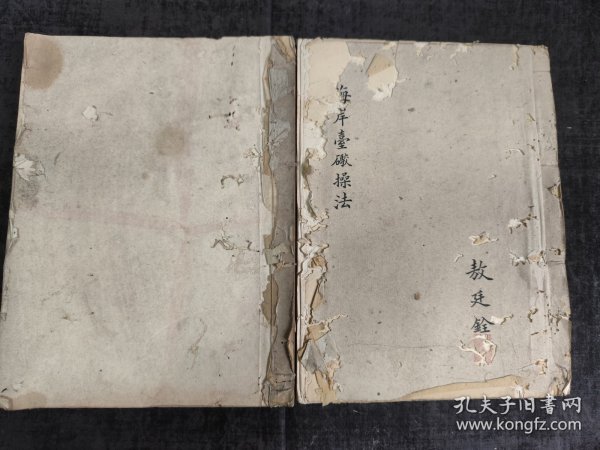 海岸臺礮操法
敖廷銓
孔夫子旧书网
www.kongfz.com